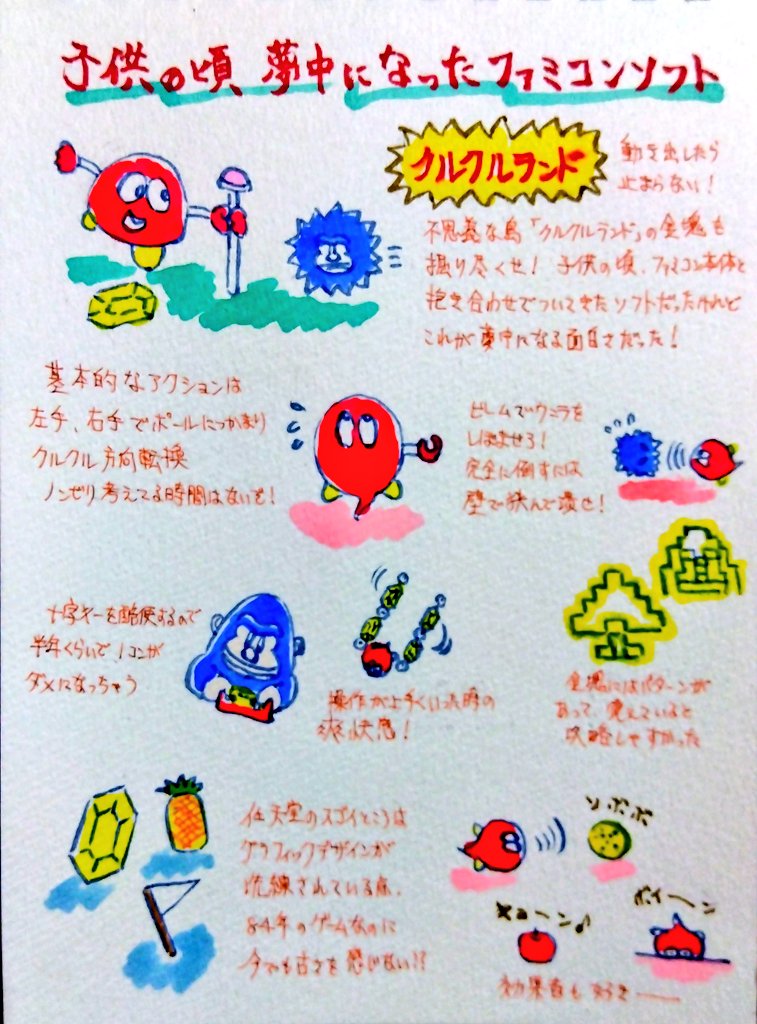 子供の頃 夢中になったファミコンソフト
クルクルランド
動き出したら
止まらない!
不思議な島「クルクルランド」の金塊を
掘り尽くせ! 子供の頃、ファミコン本体と
抱き合わせでついてきたソフトだったけれど
これが夢中になる面白さだった!
基本的なアクションは
左手、右手でポールにつかまり
クルクル方向転換
ノンビリ考えてる時間はないぞ!
ビームでウニラを
しびれさせろ!
完全に倒すには
壁で挟んで潰せ!
十字キーを酷使するので
半年くらいで1コンが
ダメになっちゃう
操作が上手くいった時の
爽快感!
金塊にはパターンが
あって、覚えていると
攻略しやすかった
任天堂のスゴイところは
グラフィックデザインが
洗練されている点。
84年のゲームなのに
今でも古さを感じない!?
ボイーン
効果音も好きー